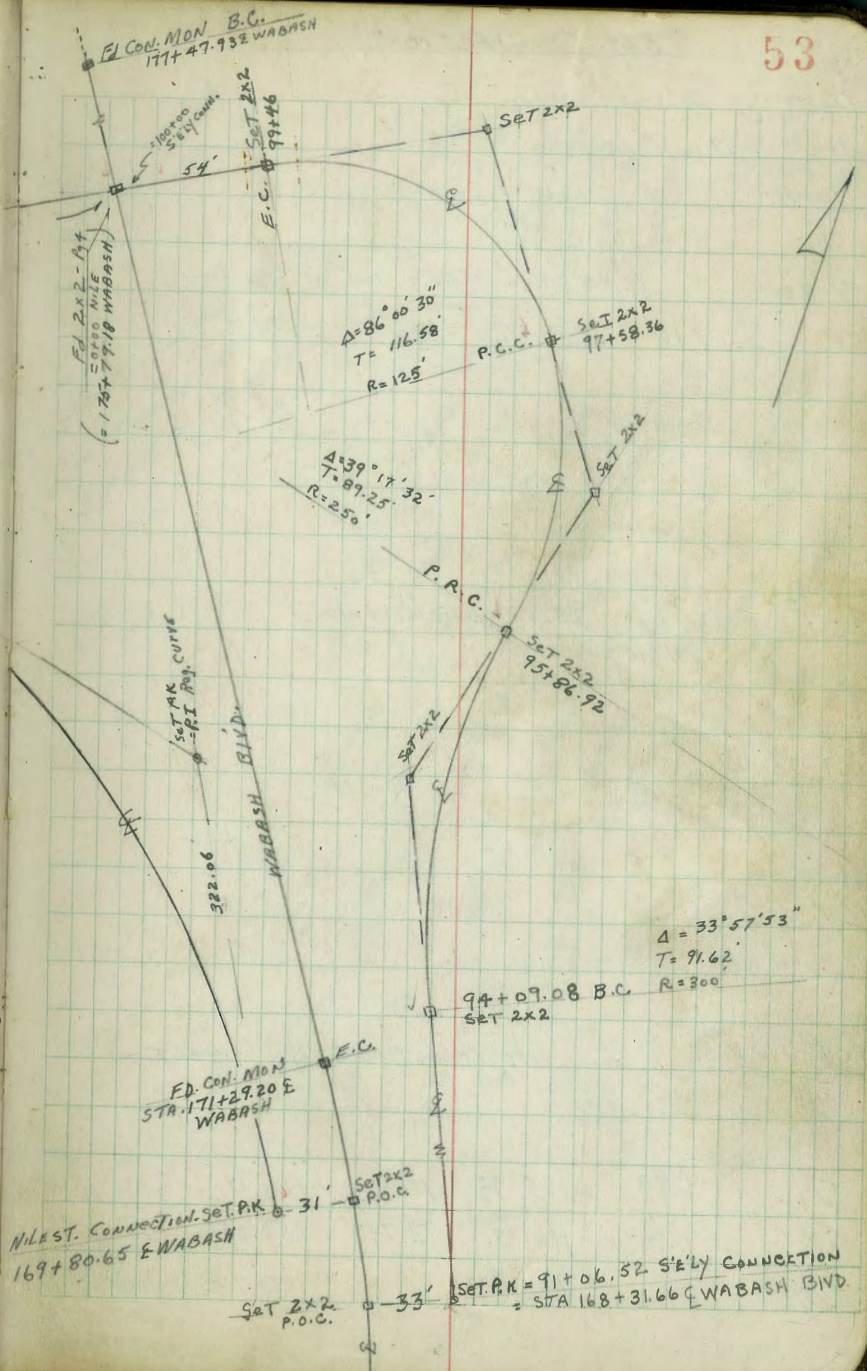 53
Fd CON. MON B.C.
177+47.93 ℄ WABASH
=100+00
S'ELY CONN.
54'
E.C. SET 2x2
99+46
SET 2x2
℄
Fd 2x2 - Pg 4
=0+00 NILE
(=175+79.18 WABASH)
Δ=86°00'30"
T= 116.58'
R=125'
P.C.C.
SET 2x2
97+58.36
SET 2x2
℄
Δ=39°17'32"
T=89.25'
R=250'
P.R.C.
SET 2x2
95+86.92
SET PK
=P.I.
CURVE
SET 2x2
℄
WABASH BLVD.
℄
322.06
Δ = 33°57'53"
T= 91.62'
R=300'
94+09.08 B.C.
SET 2x2
E.C.
FD. CON. MON
STA. 171+29.20 ℄
WABASH
℄
SET 2x2
P.O.C.
31'
NILE ST. CONNECTION. SET. P.K
169+80.65 ℄ WABASH
SET 2x2
P.O.C.
33'
SET. P.K = 91+06.52 S'E'LY CONNECTION
= STA 168+31.66 ℄ WABASH BLVD.